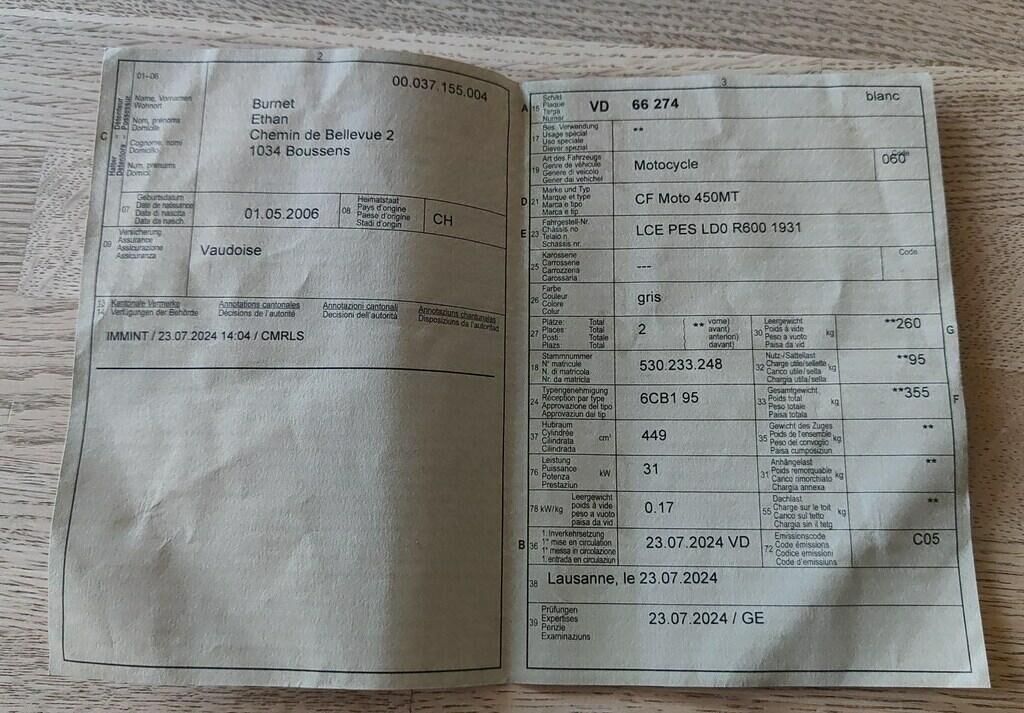 2
01-06
00.037.155.004
C
Halter
Détenteur
Détentore
Possessur
Name, Vornamen
Wohnort
Nom, prénoms
Domicile
Cognome, nomi
Domicilio
Num, prenums
Domicil
Burnet
Ethan
Chemin de Bellevue 2
1034 Boussens
07
Geburtsdatum
Date de naissance
Data di nascita
Data da nasch.
01.05.2006
08
Heimatstaat
Pays d'origine
Paese d'origine
Stadi d'origin
CH
09
Versicherung
Assurance
Assicurazione
Assicuranza
Vaudoise
13 Kantonale Vermerke Annotations cantonales Annotazioni cantonali Annotaziuns chantunalas
14 Verfügungen der Behörde Décisions de l'autorité Decisioni dell'autorità Disposiziuns da l'autoritad
IMMINT / 23.07.2024 14:04 / CMRLS
3
A 15
Schild
Plaque
Targa
Numer
VD 66 274
blanc
17
Bes. Verwendung
Usage spécial
Uso speciale
Diever spezial
**
19
Art des Fahrzeugs
Genre de véhicule
Genere di veicolo
Gener dal vehichel
Motocycle
Code
060
D 21
Marke und Typ
Marque et type
Marca e tipo
Marca e tip
CF Moto 450MT
E 23
Fahrgestell-Nr.
Châssis no
Telaio n.
Schassis nr.
LCE PES LD0 R600 1931
25
Karosserie
Carrosserie
Carrozzeria
Carossaria
---
Code
26
Farbe
Couleur
Colore
Colur
gris
27
Plätze: Total
Places: Total
Posti: Totale
Plazs: Total
2
** vorne)
avant)
anteriori)
davant)
30
Leergewicht
Poids à vide
Peso a vuoto
Paisa da vid
kg
**260
G
18
Stammnummer
N° matricule
N. di matricola
Nr. da matricla
530.233.248
32
Nutz-/Sattellast
Charge utile/sellette
Carico utile/sella
Chargia utila/sella
kg
**95
24
Typengenehmigung
Réception par type
Approvazione del tipo
Approvaziun dal tip
6CB1 95
33
Gesamtgewicht
Poids total
Peso totale
Paisa totala
kg
**355
F
37
Hubraum
Cylindrée
Cilindrata
Cilindrada
cm³
449
35
Gewicht des Zuges
Poids de l'ensemble
Peso del convoglio
Paisa cumposiziun
kg
**
76
Leistung
Puissance
Potenza
Prestaziun
kW
31
31
Anhängelast
Poids remorquable
Carico rimorchiato
Chargia annexa
kg
**
78 kW/kg
Leergewicht
poids à vide
peso a vuoto
paisa da vid
0.17
55
Dachlast
Charge sur le toit
Carico sul tetto
Chargia sin il tetg
kg
**
B 36
1. Inverkehrsetzung
1re mise en circulation
1a messa in circolazione
1. entrada en circulaziun
23.07.2024 VD
72
Emissionscode
Code émissions
Codice emissioni
Code d'emissiuns
C05
38
Lausanne, le 23.07.2024
39
Prüfungen
Expertises
Perizie
Examinaziuns
23.07.2024 / GE